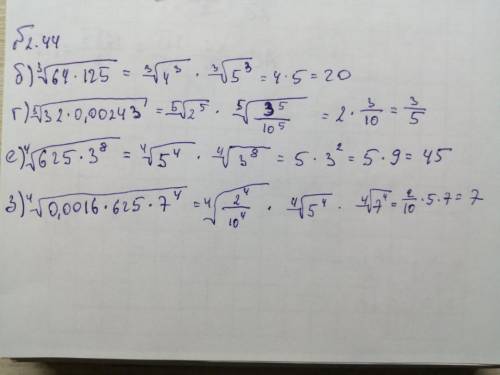 №2.44
б) ∛(64·125) = ∛(4³) · ∛(5³) = 4·5 = 20
г) ⁵√(32·0,00243) = ⁵√(2⁵) · ⁵√(3⁵/10⁵) = 2 · 3/10 = 3/5
е) ⁴√(625·3⁸) = ⁴√(5⁴) · ⁴√(3⁸) = 5·3² = 5·9 = 45
з) ⁴√(0,0016·625·7⁴) = ⁴√(2⁴/10⁴) · ⁴√(5⁴) · ⁴√(7⁴) = 2/10 · 5 · 7 = 7